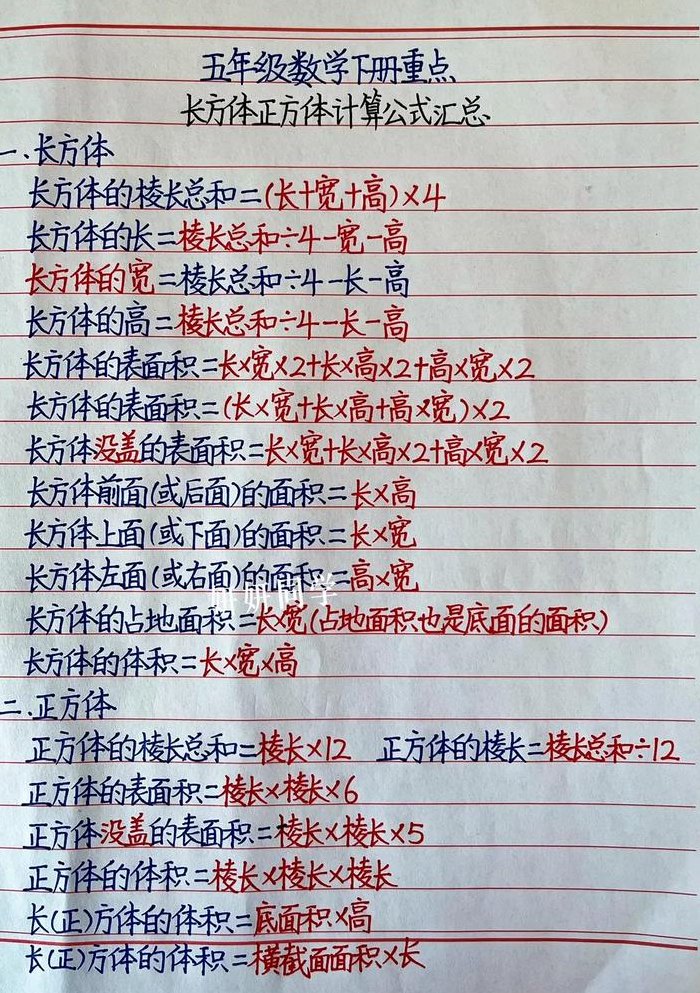 五年级数学下册重点
长方体正方体计算公式汇总
一.长方体
长方体的棱长总和=(长+宽+高)×4
长方体的长=棱长总和÷4-宽-高
长方体的宽=棱长总和÷4-长-高
长方体的高=棱长总和÷4-长-高
长方体的表面积=长×宽×2+长×高×2+高×宽×2
长方体的表面积=(长×宽+长×高+高×宽)×2
长方体没盖的表面积=长×宽+长×高×2+高×宽×2
长方体前面(或后面)的面积=长×高
长方体上面(或下面)的面积=长×宽
长方体左面(或右面)的面积=高×宽
长方体的占地面积=长×宽(占地面积也是底面的面积)
长方体的体积=长×宽×高
二.正方体
正方体的棱长总和=棱长×12 正方体的棱长=棱长总和÷12
正方体的表面积=棱长×棱长×6
正方体没盖的表面积=棱长×棱长×5
正方体的体积=棱长×棱长×棱长
长(正)方体的体积=底面积×高
长(正)方体的体积=横截面面积×长